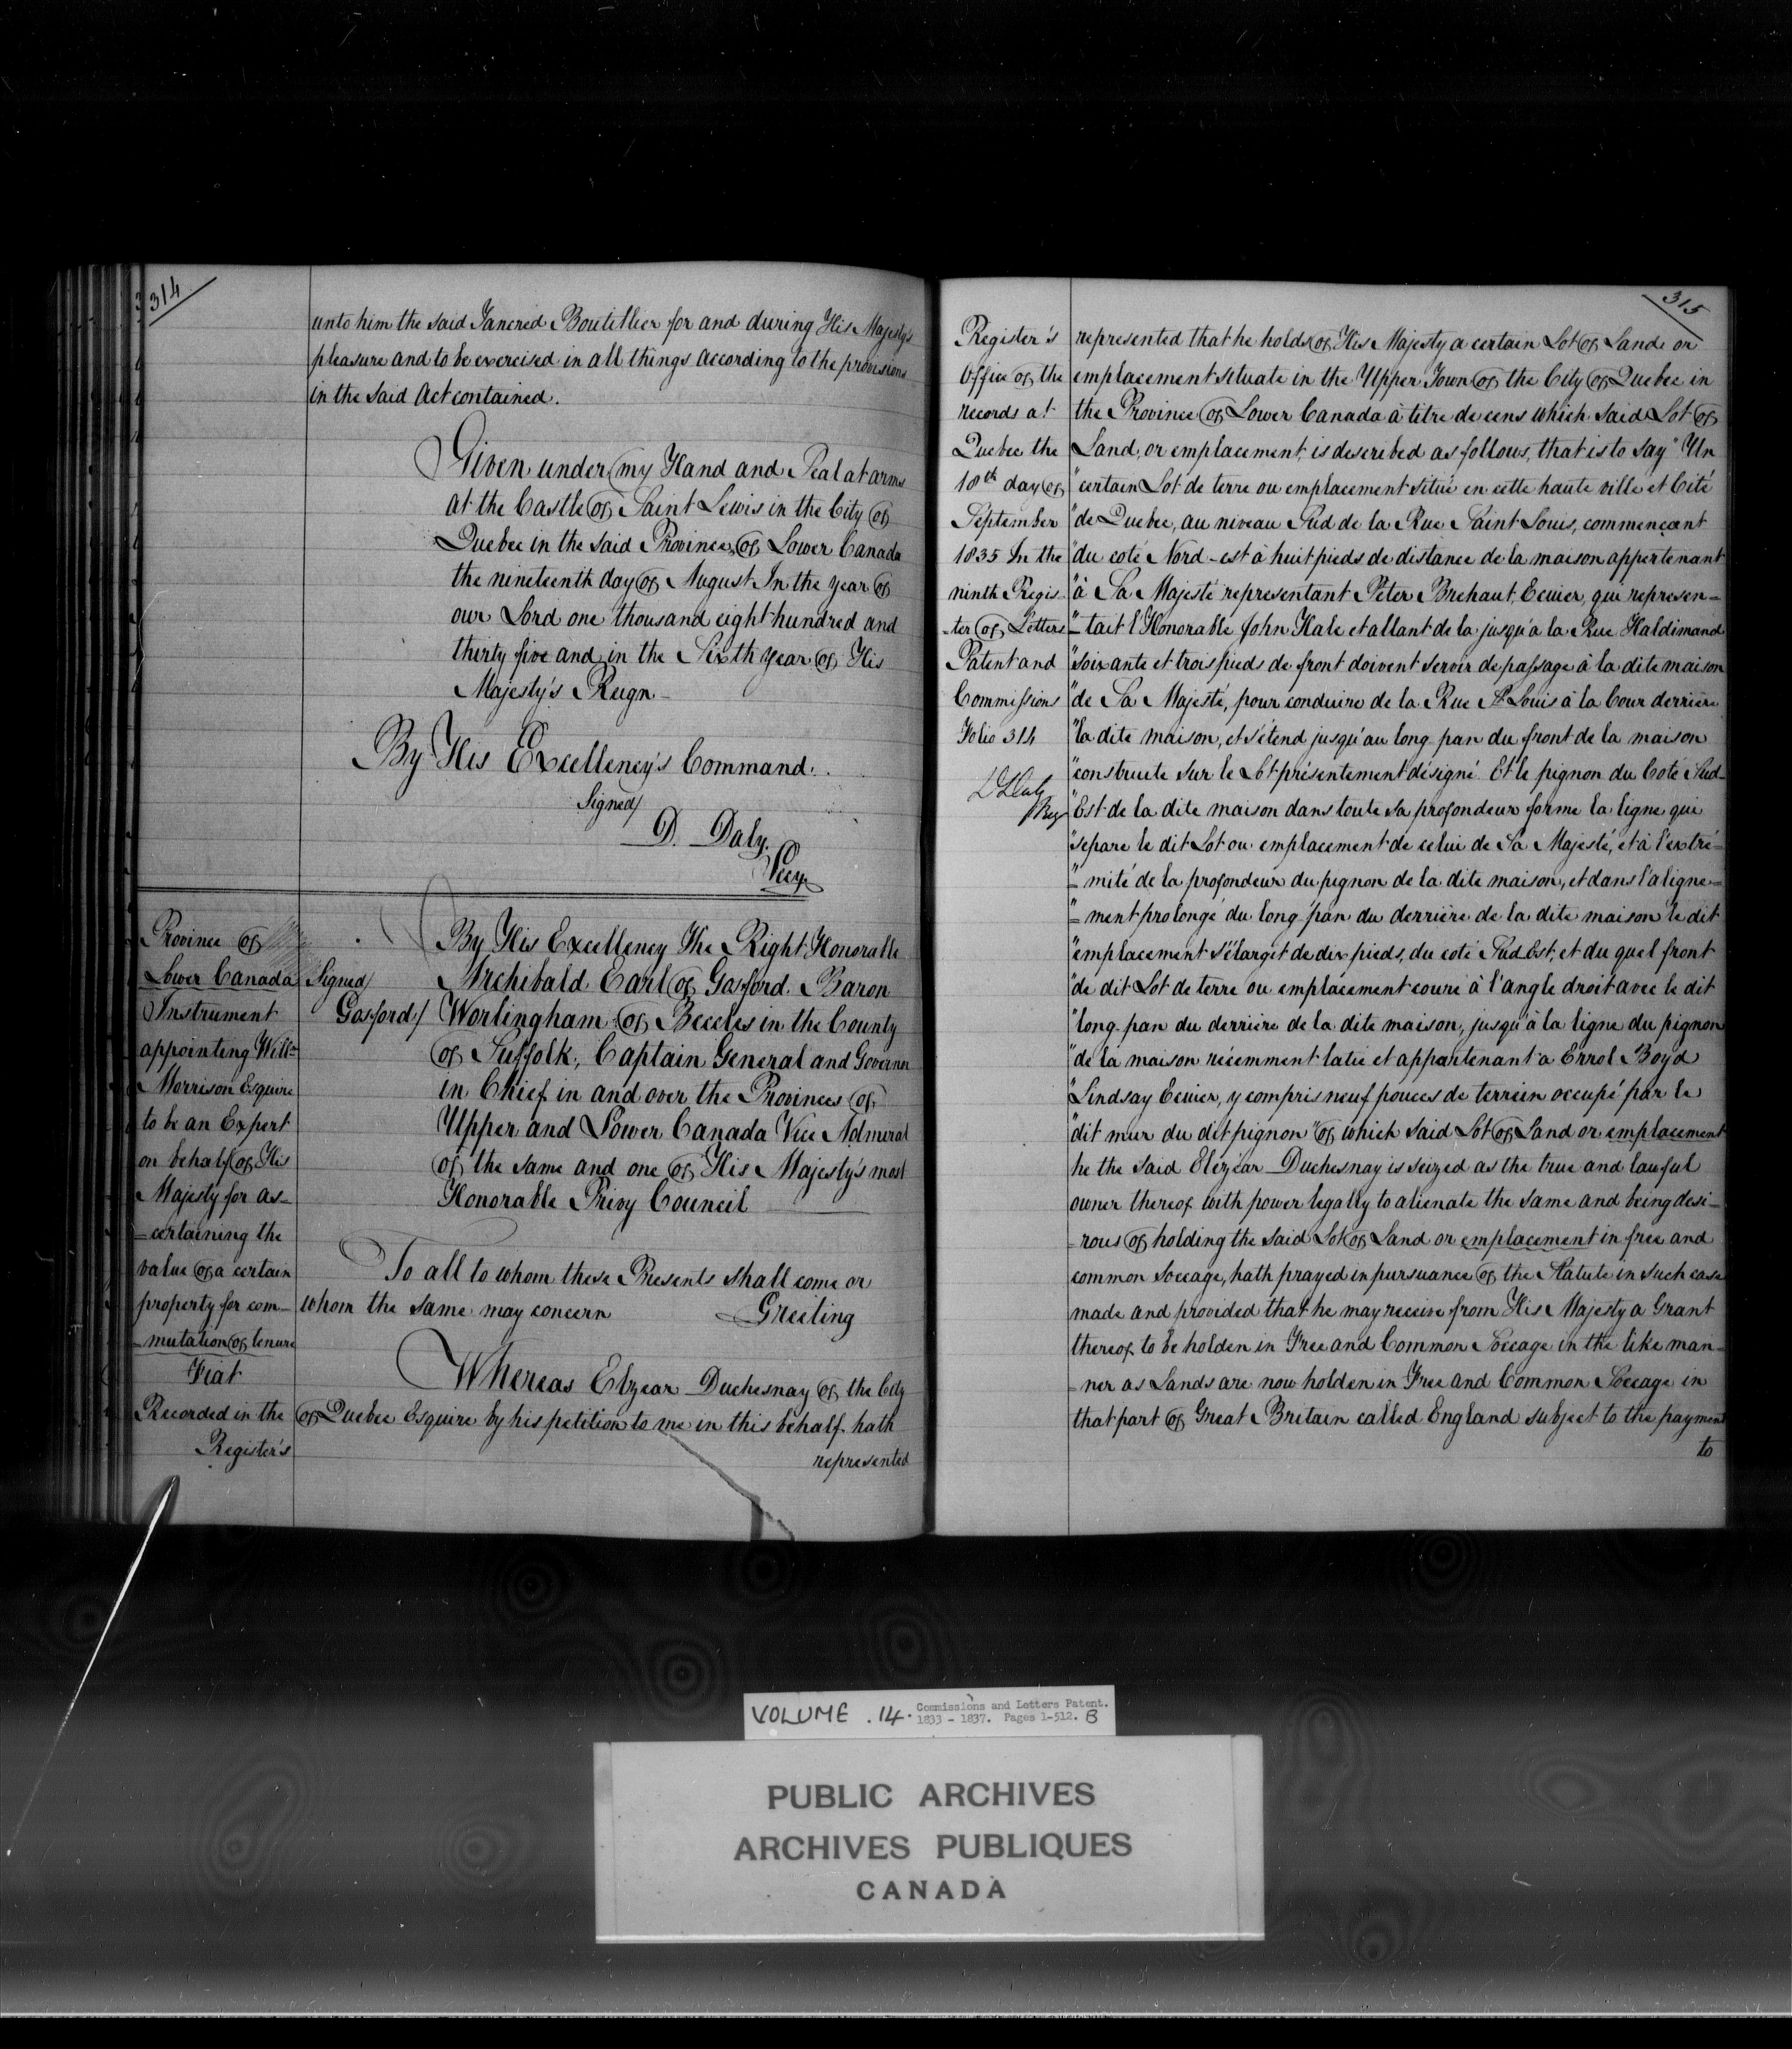 314
unto him the said Tancred Boutillier for and during His Majesty's
pleasure and to be exercised in all things according to the provisions
in the said Act contained.
Given under my Hand and Seal at arms
at the Castle of Saint Lewis in the City of
Quebec in the said Province of Lower Canada
the nineteenth day of August In the year of
our Lord one thousand eight hundred and
thirty five and in the Sixth year of His
Majesty's Reign
By His Excellency's Command.
Signed/
D. Daly.
Secy.
Province of
Lower Canada
Instrument
appointing Willm
Morrison Esquire
to be an Expert
on behalf of His
Majesty for as-
-certaining the
value of a certain
property for com-
-mutation of tenure
Fiat
Recorded in the
Register's
Signed/
Gosford/
By His Excellency The Right Honorable
Archibald Earl of Gosford. Baron
Worlingham of Beccles in the County
of Suffolk, Captain General and Governor
in Chief in and over the Provinces of
Upper and Lower Canada Vice Admiral
of the same and one of His Majesty's most
Honorable Privy Council
To all to whom these Presents shall come or
whom the same may concern Greeting
Whereas Elzear Duchesnay of the City
of Quebec Esquire by his petition to me in this behalf hath
represented
315
Register's
Office of the
records at
Quebec the
18th day of
September
1835 In the
ninth Regis-
-ter of Letters
Patent and
Commissions
Folio 314
D Daly
Reg
represented that he holds of His Majesty a certain Lot of Land or
emplacement situate in the Upper Town of the City of Quebec in
the Province of Lower Canada à titre de cens which said Lot of
Land, or emplacement, is described as follows, that is to say "Un
"certain Lot de terre ou emplacement situé en cette haute ville et Cité
"de Quebec, au niveau Sud de la Rue Saint Louis, commençant
"du coté Nord-est à huit pieds de distance de la maison appertenant
"à Sa Majesté representant Peter Brehaut, Ecuier, qui represen-
"-tait l'Honorable John Hale et allant de la jusqu'a la Rue Haldimand
"soixante et trois pieds de front doivent servir de passage à la dite maison
"de Sa Majesté, pour conduire de la Rue St Louis à la Cour derriere
"la dite maison, et s'étend jusqu'au long pan du front de la maison
"construite sur le Lot présentement désigné Et le pignon du Coté Sud-
"Est de la dite maison dans toute sa profondeur forme la ligne qui
"separe le dit Lot ou emplacement de celui de Sa Majesté, et à l'extré-
"-mité de la profondeur du pignon de la dite maison, et dans l'aligne-
"-ment prolongé du long pan du derriere de la dite maison le dit
"emplacement s'élargit de dix pieds, du coté Sud Est, et du quel front
"de dit Lot de terre ou emplacement courir à l'angle droit avec le dit
"long pan du derriere de la dite maison, jusqu'à la ligne du pignon
"de la maison récemment batie et appartenant a Errol Boyd
"Lindsay Ecuier, y compris neuf pouces de terrein occupé par le
"dit mur du dit pignon" of which said Lot of Land or emplacement
he the said Elézéar Duchesnay is seized as the true and lawful
owner thereof with power legally to alienate the same and being desi-
-rous of holding the said Lot of Land or emplacement in free and
common soccage, hath prayed in pursuance of the Statute in such case
made and provided that he may receive from His Majesty a Grant
thereof to be holden in Free and Common Soccage in the like man-
-ner as Lands are now holden in Free and Common Soccage in
that part of Great Britain called England subject to the payment
to
VOLUME . 14. Commissions and Letters Patent.
1833 - 1837. Pages 1-512. B
PUBLIC ARCHIVES
ARCHIVES PUBLIQUES
CANADA